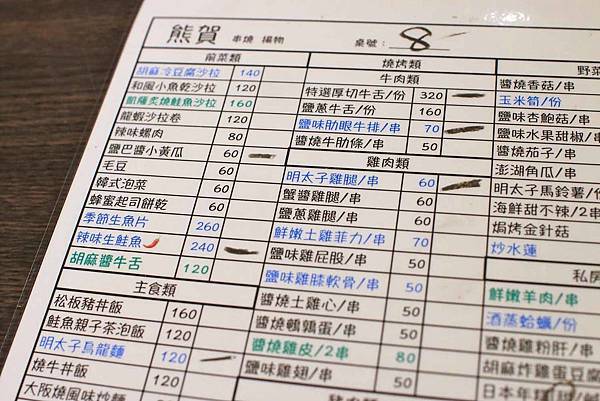 熊賀 串燒 揚物 桌號: 8
前菜類
胡麻冷豆腐沙拉 140
和風小魚乾沙拉 120
凱薩炙燒鮭魚沙拉 160
龍蝦沙拉卷 120
辣味螺肉 80
鹽巴醬小黃瓜 60
毛豆 60
韓式泡菜 60
蜂蜜起司餅乾 60
季節生魚片 260
辣味生鮭魚 240
胡麻醬牛舌 120
主食類
松板豬丼飯 160
鮭魚親子茶泡飯 120
明太子烏龍麵 120
燒牛丼飯 120
大阪燒風味炒麵
燒烤類
牛肉類
特選厚切牛舌/份 320
鹽蔥牛舌/份 160
鹽味肋眼牛排/串 70
醬燒牛肋條/串 50
雞肉類
明太子雞腿/串 60
蟹醬雞腿/串 60
鹽蔥雞腿/串 60
鮮嫩土雞菲力/串 70
鹽味雞屁股/串 50
鹽味雞膝軟骨/串 50
醬燒土雞心/串 50
醬燒鵪鶉蛋/串 50
醬燒雞皮/2串 80
鹽味雞翅/串 50
野菜
醬燒香菇/串
玉米筍/份
鹽味杏鮑菇/串
鹽味水果甜椒/串
醬燒茄子/串
澎湖角瓜/串
明太子馬鈴薯/份
海鮮甜不辣/2串
焗烤金針菇
炒水蓮
私房
鮮嫩羊肉/串
酒蒸蛤蠣/份
醬燒雞粉肝/串
胡麻炸雞蛋豆腐
日本年糕